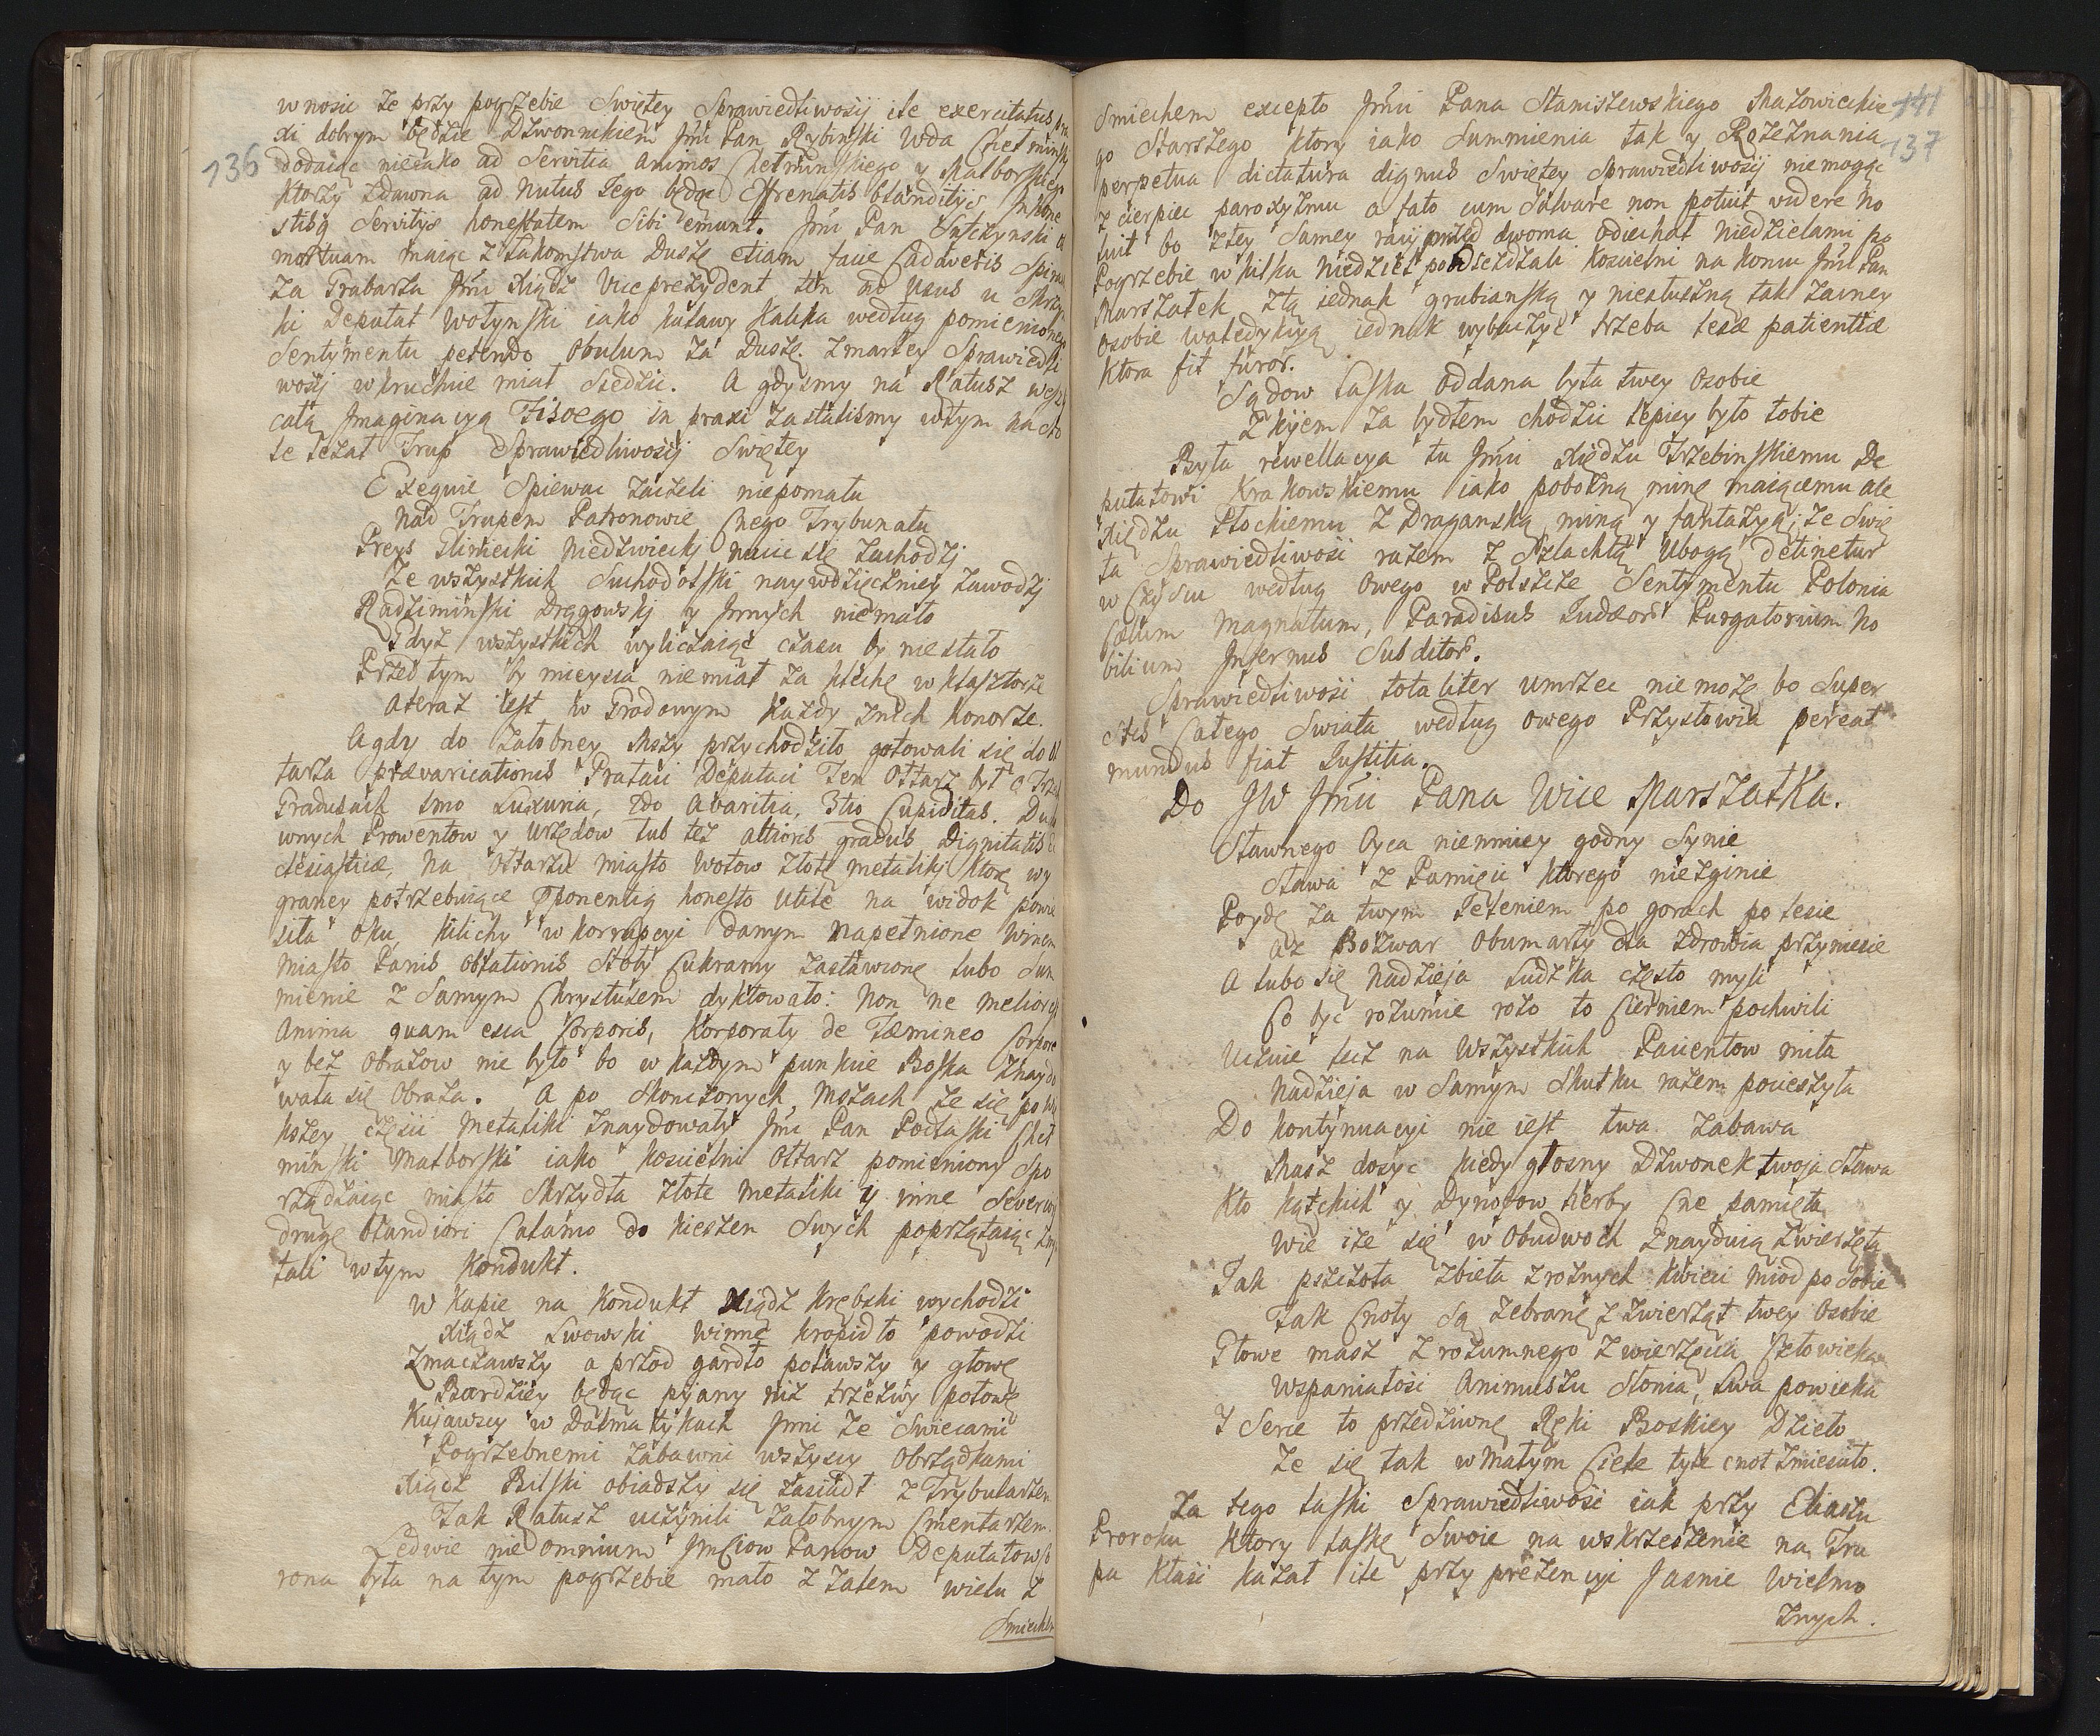 136
wnosic że przy pogrzebie Swiętey Sprawiedliwosij ile exercitatus pra
xi dobrym będzie Dzwonnikiem Jmć Pan Rybinski Wda Chełminsky
dodaiąc nieiako ad Servitia animos Chełminskiego y Malborskiego
ktorzy zdawna ad nutus Tego będąc Effrenatis blanditijs
Servitijs honestatem Sibi emunt. Jmć Pan
mortuam maiąc z łakomstwa Duszę etiam faue Cadaveris
za Grabarza Jmć Xiądz Viceprezydent ten ad usus u
ki Deputat Wołynski iako kulawy kalika według pomienionego
Sentymentu petendo obulum za Duszę zmarłey Sprawiedli
wosij wkruchcie miał siedzic. A gdysmy na Ratusz weszli
całą Jmaginacyą in praxi zastalismy wtym na sto
le leżał Trup Sprawiedliwosij Swiętey
Exequie Spiewac zaczeli niepomału
Nad Trupem Patronowie Cnego Trybunału
Preys Gliniecki Niedzwieckj nuci się zachodzj
Ze wszystkich Suchodolski naywdzięczniey zawodzj
Radziminski Dręgowskj y Jnnych niemało
Gdyż wszystkich wyliczaiąc czasu by niestało
Przed tym by mieysca niemiał za klechę w klasztorze
Ateraz iest w Grodowym każdy znich honorze.
Agdy do żałobney Mszy przychodziło gotowali się do Oł
tarza prævaricationis Prałaci Deputaci Ten Ołtarz był o Trzech
Gradusach 1mo Luxuria, 2do Avaritia, 3tio Cupiditas. Ducho
wnych Prowentow y Urzędow lub też altioris gradus Dignitatis Ec
clesiasticæ, na Ołtarzu miasto wotow złote metalikj ktore wy
graney potrzebuiące ponentią honesto utile na widok
oku, kilichy w korrupcyi danym napełnione winem
miasto Panis oblationis Stoły Cukramy zastawione lubo Sum
mienie z Samym Chrystusem dyktowało: Non ne melior est
Anima quam esca Corporis, Korporały de Fæmineo Corpore
y bez obrazow nie było bo w każdym punkcie Boska znaydo
wała się obraza. A po Skonczonych Mszach że się po wię
kszey częsci metaliki znaydowały Jmć Pan Podłaski Cheł
minski Malborski iako koscielni Ołtarz pomieniony Spo
rządzaiąc miasto Skrzydła złote metaliki y inne Severiori
drugę blandiori Calamo do kieszen Swych poprzątaiąc
tali wtym Kondukt.
W kapie na kondukt Xiądz Krębski wychodzi
Xiądz Lwowski winne kropidło powodzi
Zmaczawszy aprzod gardło polawszy y głowę
Bardziey będąc pijany niż trzezwy połowę
Kujawscy w Dalmatykach Jnni ze Swiecami
Pogrzebnemi zabawni wszyscy obrządkami
Xiądz Bilski obiadszy się zasiadł z Trybularzem
Tak Ratusz uczynili żałobnym Cmentarzem.
Ledwie nie omnium Jmciow Panow Deputatow
rona była na tym pogrzebie mało z żalem wielu z
Smiechem
141
137
Smiechem excepto Jmći Pana Staniszewskiego Mazowieckie
go Starszego ktory iako Summienia tak y Rozeznania
perpetua dictatura dignus Swiętey Sprawiedliwosij niemogąc
zcierpiec paroxyzmu a fato cum Salvare non potuit videre no
luit bo ztey Samey racij przed dwoma odiechał Niedzielami po
Pogrzebie w kilka Niedziel poodjeżdżali koscielni na koniu Jmć Pan
Marszałek złą iednak grubianską y niesłuszną tak zacney
osobie waledykcyą iednak wybaczyc trzeba lesæ patientiæ
ktora fit furor.
Sądow Laska oddana była twey osobie
Z kijem za bydłem chodzic lepiey było tobie
Była rewellacya tu Jmći Xiędzu Trzebinskiemu De
putatowi Krakowskiemu iako pobożną minę maiącemu ale
Xiędzu Płockiemu z Draganską miną y fantazyą; że Swię
ta Sprawiedliwosc razem z Szlachtą Ubogą detinetur
w Czyscu według owego w Polszcze Sentymentu Polonia
Cœlum Magnatum, Paradisus Judæor Purgatorium No
bilium Jnfernus Subditor.
Sprawiedliwosc totaliter umrzec niemoże bo Super
stes Całego Swiata według owego Przysłowia pereat
mundus fiat Justitia.
Do JW Jmći Pana Wice Marszałka.
Sławnego Oyca niemniey godny Synie
Sława z Pamięci ktorego niezginie
Poydę za twym Jeleniem po gorach po lesie
aż Bożwar obumarły dla zdrowia przyniesie
A lubo się Nadzieja ludzka często myli
Co byc rozumie rożo to Cierniem pochwili
Ucznie lecz na wszystkich Pacientow miła
Nadzieja w Samym Skutku razem pocieszyła
Do kontynuacyi nie iest twa zabawa
Masz dosyc kiedy głosny Dzwonek twoja Sława
Kto Kątckich y Dynofow herby Cne pamięta
Wie iże się w obudwoch znayduią zwierzęta
Jak pszczoła zbiera zrożnych kwieci miod po Sobie
Tak Cnoty Są zebrane z zwierząt twey Osobie
Głowe masz z rozumnego zwierzęcia Człowieka
Wspaniałosc Animuszu Słonia, Lwa powieka
Y Serce to przedziwne Ręki Boskiey Dzieło
Że się tak wmałym Ciele tyle cnot zmiesciło.
Za tego laski Sprawiedliwosc iak przy Eliaszu
Proroku ktory laskę Swoie na wskrzeszenie na Tru
pa kłasc kazał ile przy prezencyi Jasnie Wielmo
żnych.